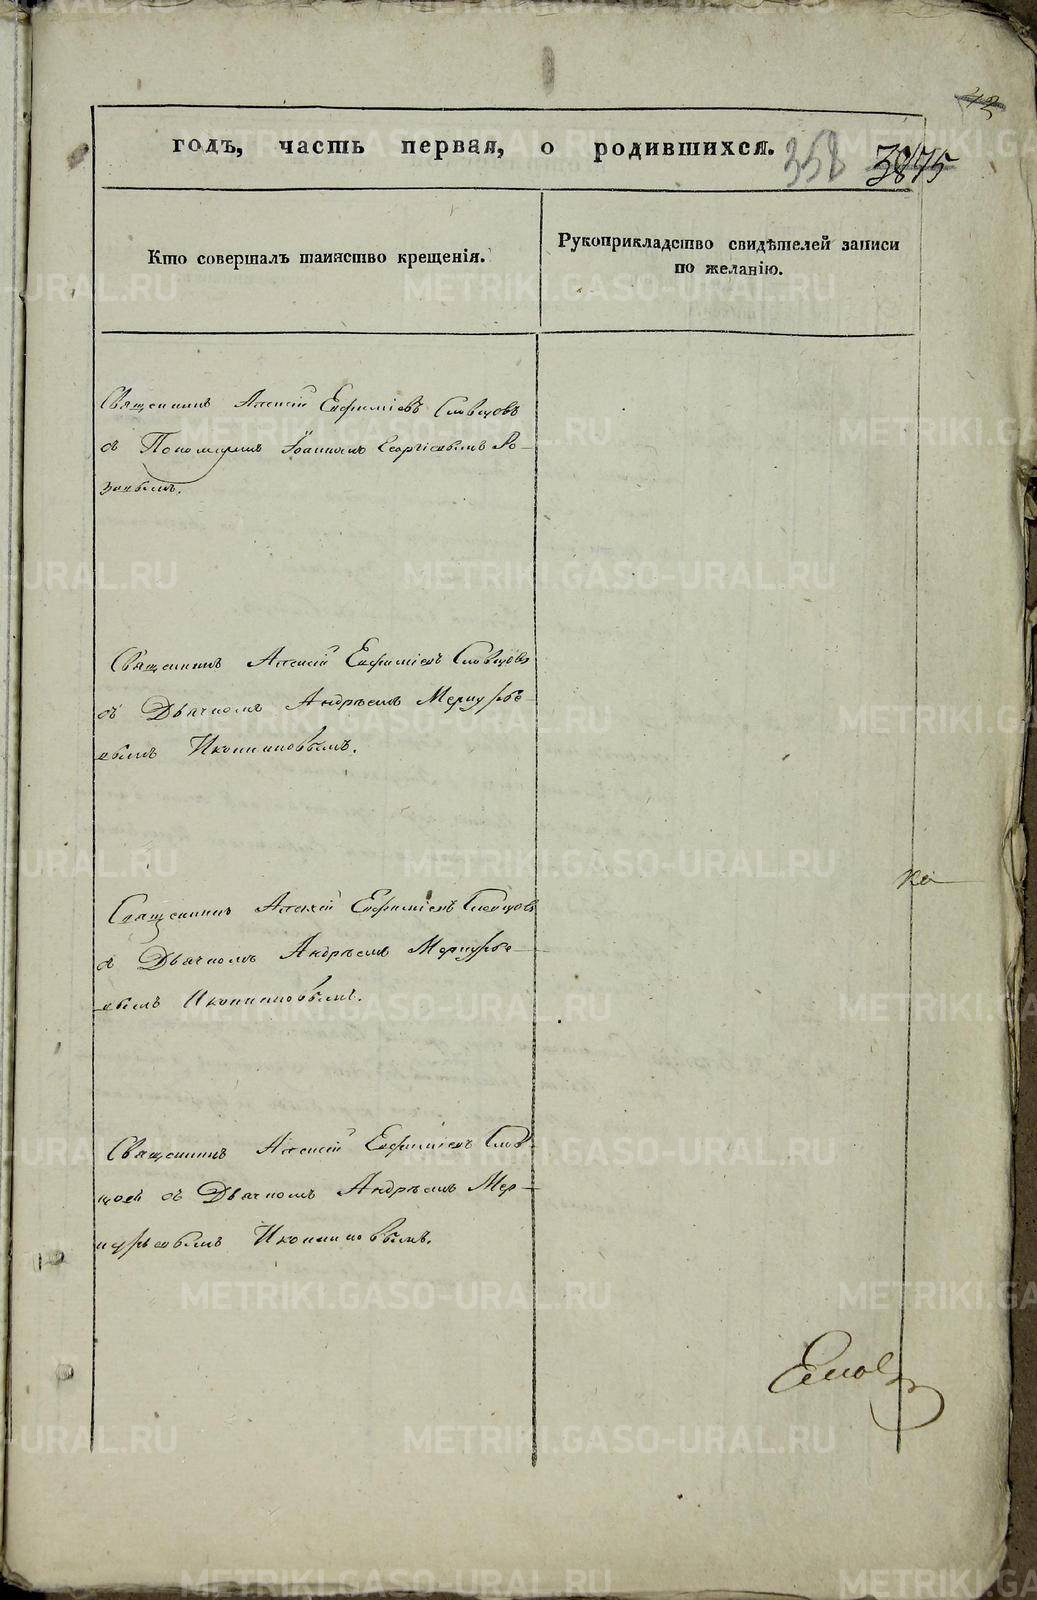 годъ, часть первая, о родившихся. 358
Кто совершалъ таинство крещенія.
Рукоприкладство свидѣтелей записи
по желанію.
Священникъ Алексій Евфиміевъ Словцовъ
съ Пономаремъ Іоанномъ Георгіевымъ Ро-
зановымъ.
Священникъ Алексій Евфиміевъ Словцовъ
съ Дьячкомъ Андреемъ Меркурье-
вымъ Иконниковымъ.
Священникъ Алексій Евфиміевъ Словцовъ
съ Дьячкомъ Андреемъ Меркурье-
вымъ Иконниковымъ.
Священникъ Алексій Евфиміевъ Слов-
цовъ съ Дьячкомъ Андреемъ Мер-
курьевымъ Иконниковымъ.
METRIKI.GASO-URAL.RU